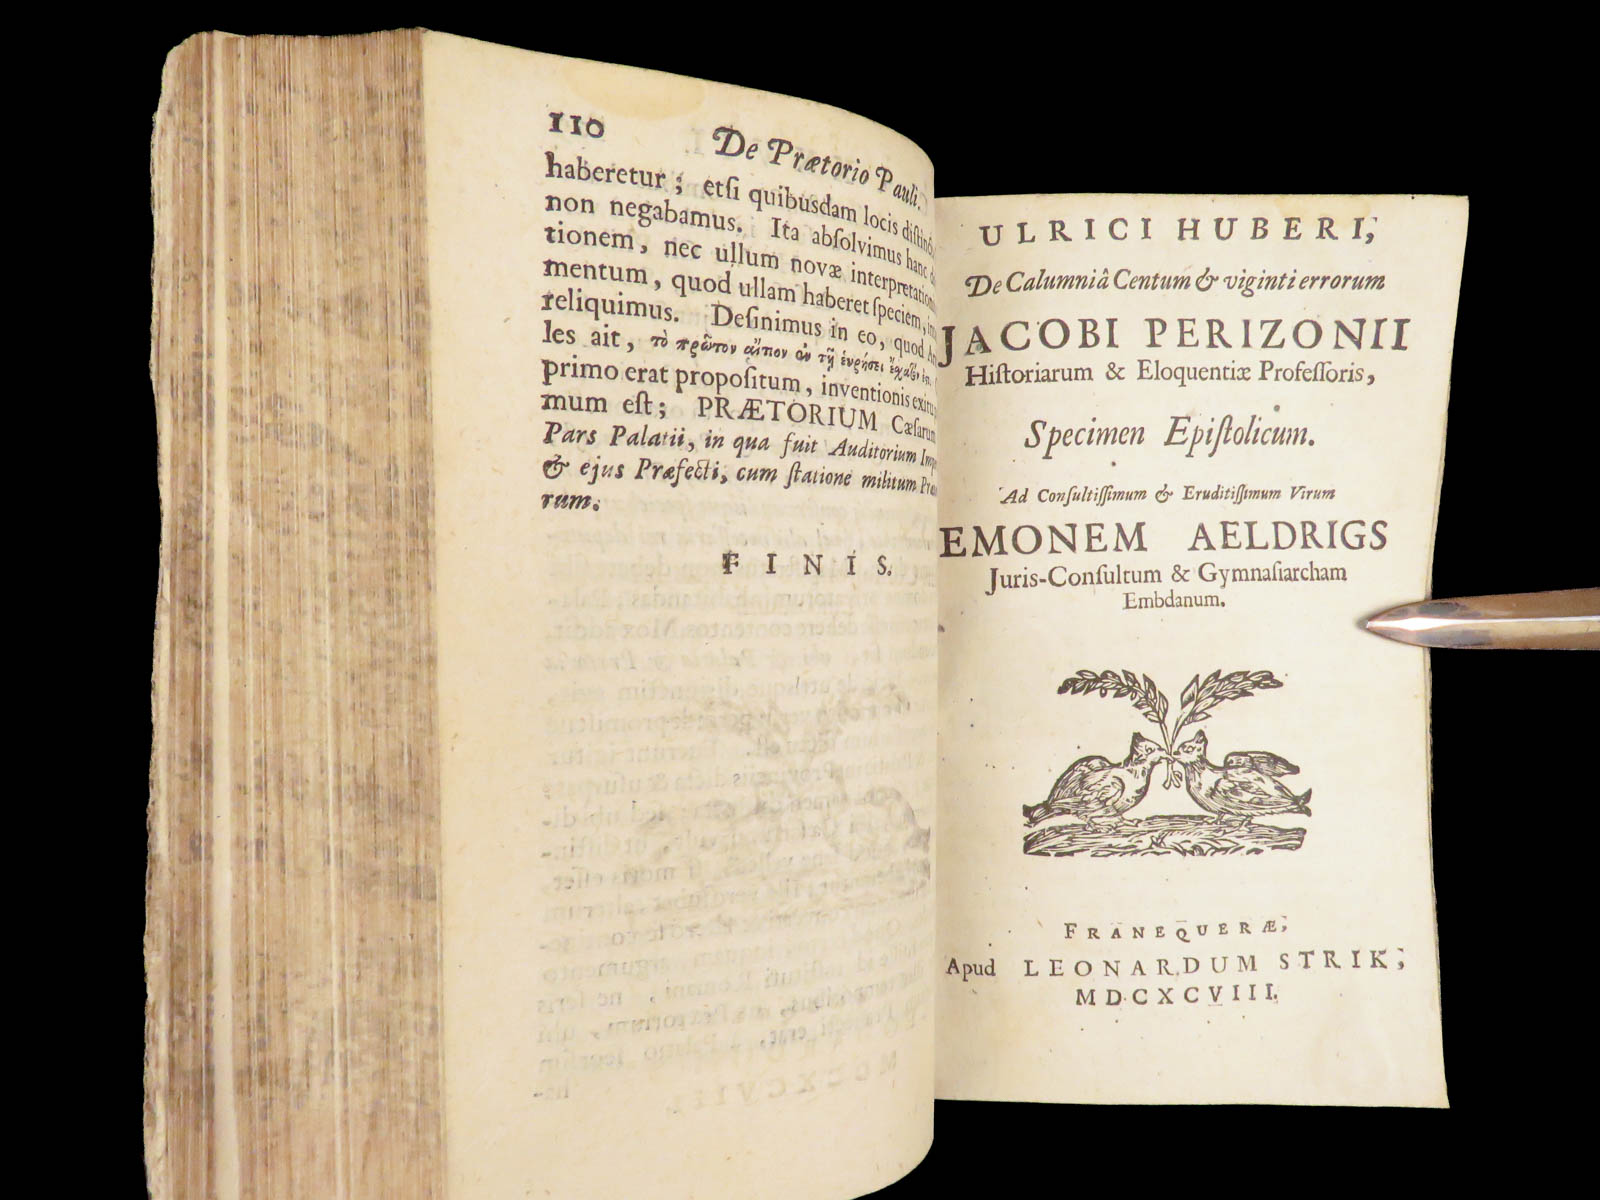 110 De Prætorio Pauli.
haberetur; etſi quibusdam locis
non negabamus. Ita abſolvimus hanc
tionem, nec ullum novæ
mentum, quod ullam haberet ſpeciem,
reliquimus. Deſinimus in eo, quod
les ait, τὸ πρῶτον αἴτιον ἐν τῇ εὑρήσει
primo erat propoſitum, inventionis
mum eſt; PRÆTORIUM Cæſarum
Pars Palatii, in qua fuit Auditorium
& ejus Præfecti, cum ſtatione militum
rum.
FINIS.
ULRICI HUBERI,
De Calumniâ Centum & viginti errorum
JACOBI PERIZONII
Hiſtoriarum & Eloquentiæ Profeſſoris,
Specimen Epiſtolicum.
Ad Conſultiſſimum & Eruditiſſimum Virum
EMONEM AELDRIGS
Juris-Conſultum & Gymnaſiarcham
Embdanum.
FRANEQUERÆ,
Apud LEONARDUM STRIK,
MDCXCVIII.